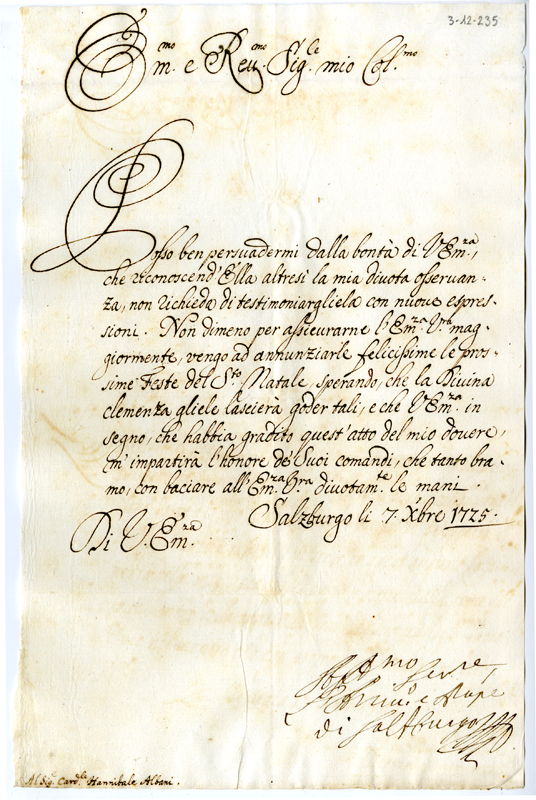 3-12-235
Em.mo e Reu.mo Sig.le mio Col.mo
Posso ben persuadermi dalla bontà di V. Em.za,
che riconoscend'Ella altresì la mia diuota osseruan-
za, non richieda di testimoniargliela con nuoue espres-
sioni. Non dimeno per assicurarne l'Em.za V.ra mag-
giormente, vengo ad annunziarle felicissime le pros-
sime Feste del S.to Natale, sperando, che la Diuina
clemenza gliele lascierà goder tali, e che V. Em.za in
segno, che habbia gradito quest'atto del mio douere,
m'impartirà l'honore de' Suoi comandi, che tanto bra-
mo, con baciare all'Em.za V.ra diuotam.te le mani.
Salzburgo li 7. Xbre 1725.
Di V. Em.za
mo Serre,
di Saltzburgo
Al Sig. Card.le Hannibale Albani.